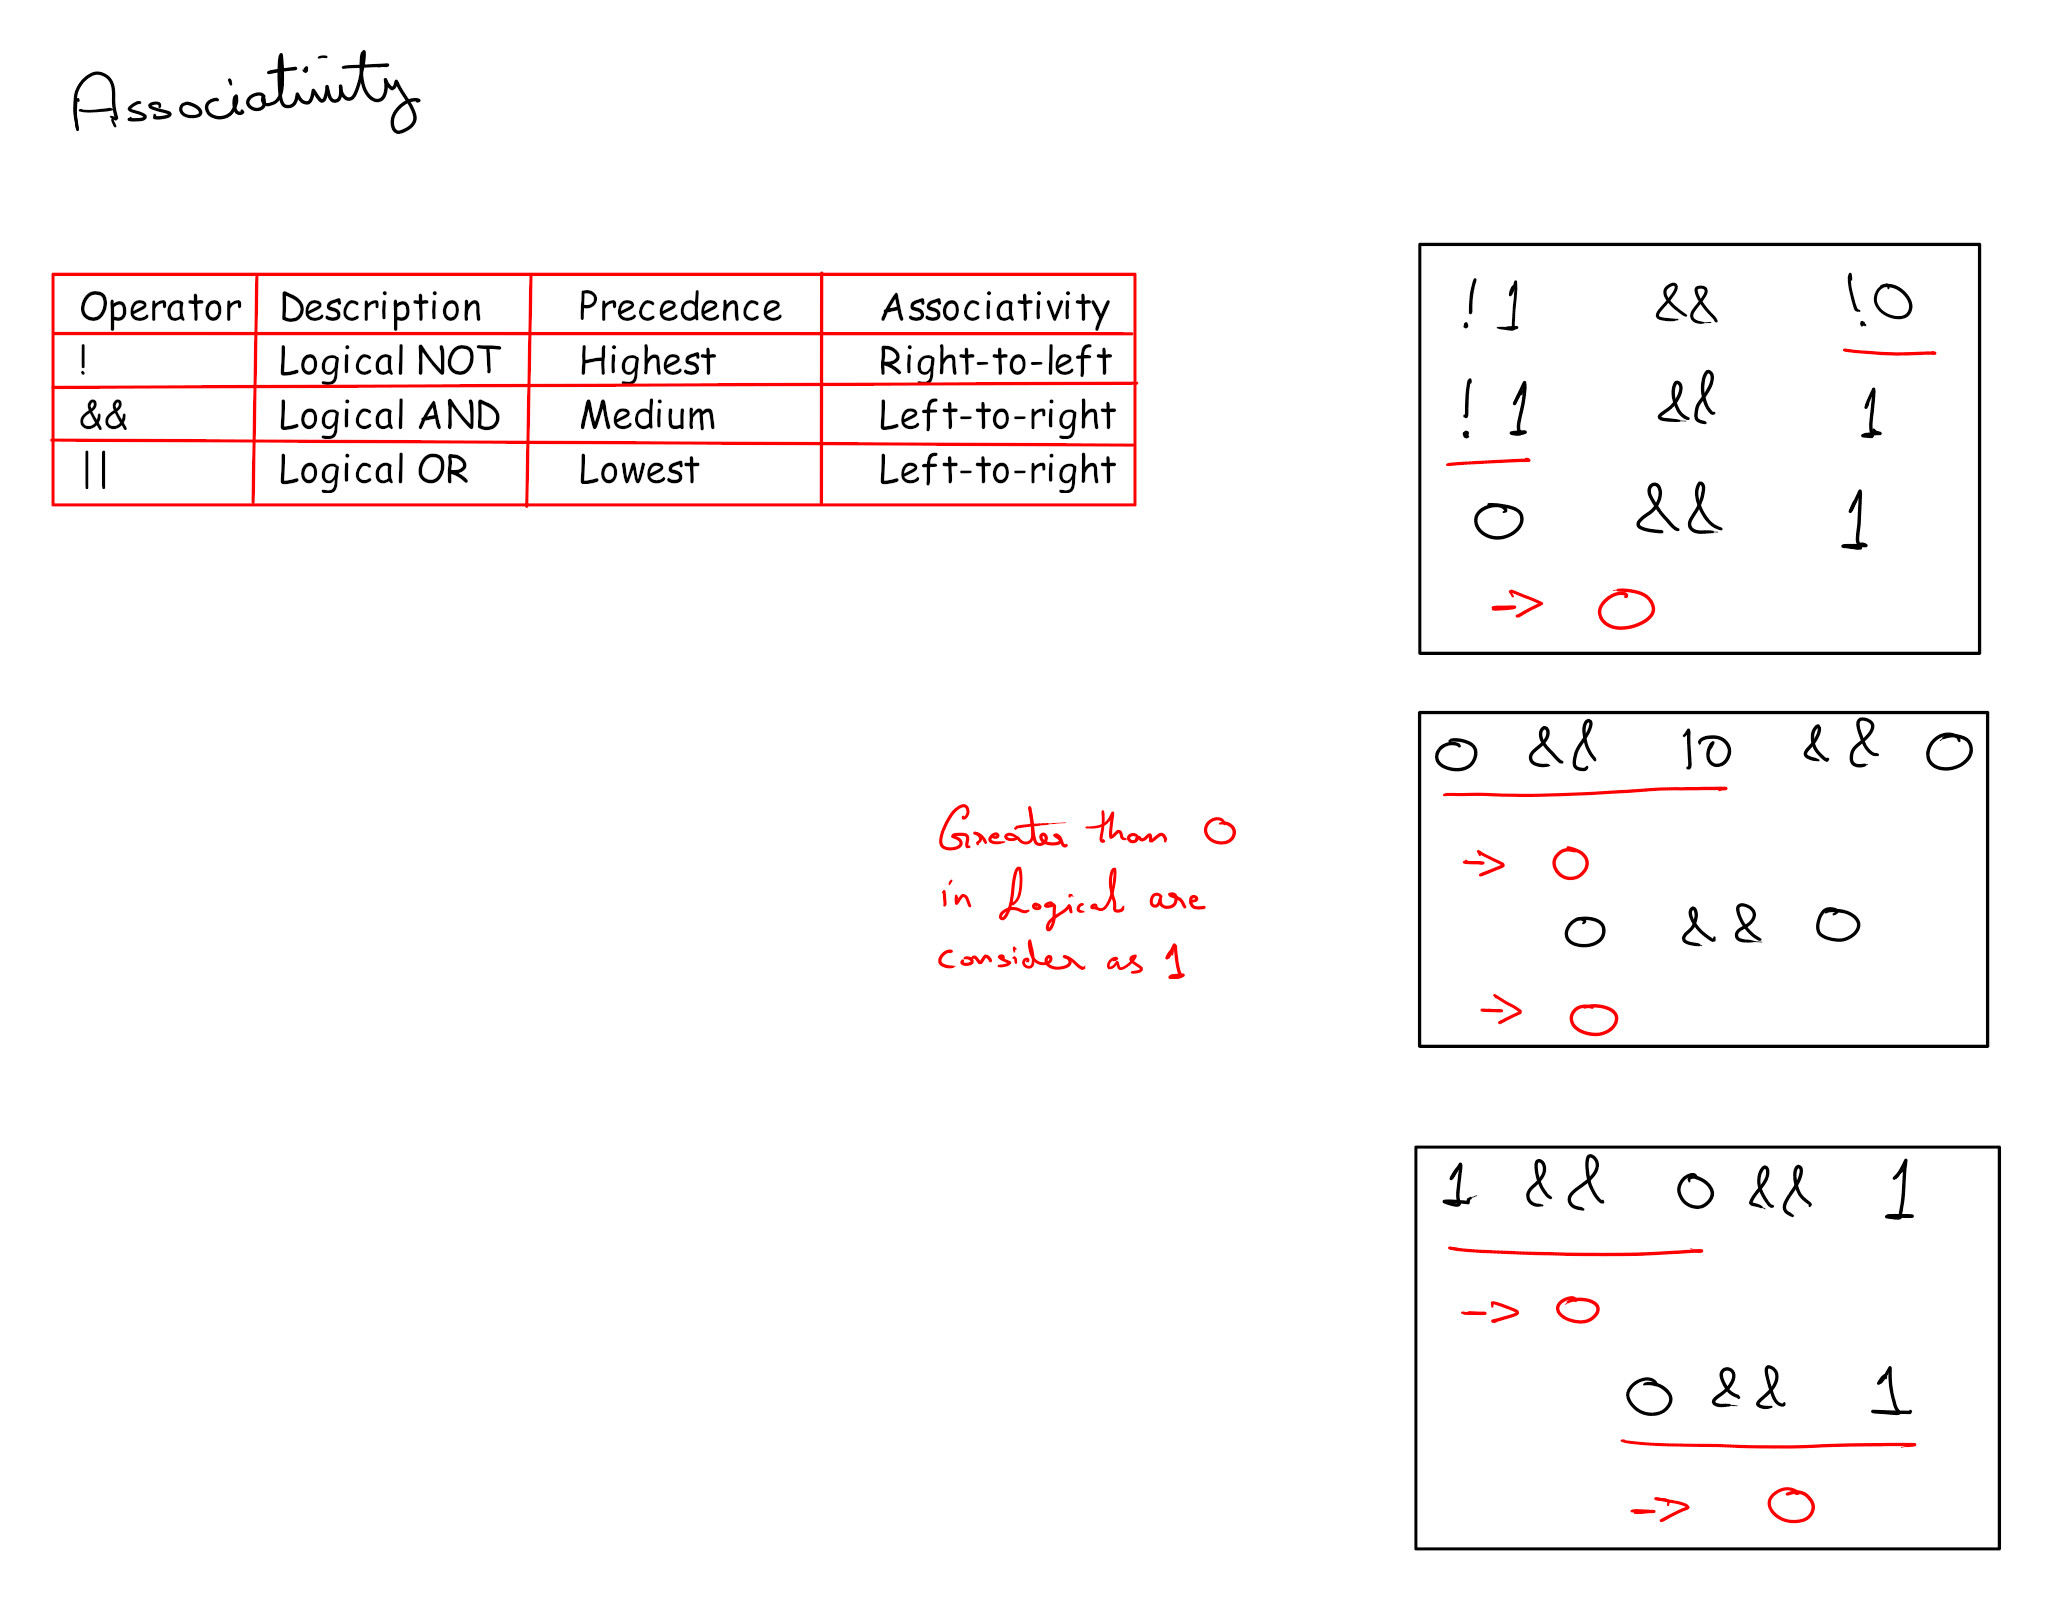 Associativity
Operator Description Precedence Associativity
! Logical NOT Highest Right-to-left
&& Logical AND Medium Left-to-right
|| Logical OR Lowest Left-to-right
!1 && !0
!1 && 1
0 && 1
-> 0
Greater than 0
in Logical are
consider as 1
0 && 10 && 0
-> 0
0 && 0
-> 0
1 && 0 && 1
-> 0
0 && 1
-> 0